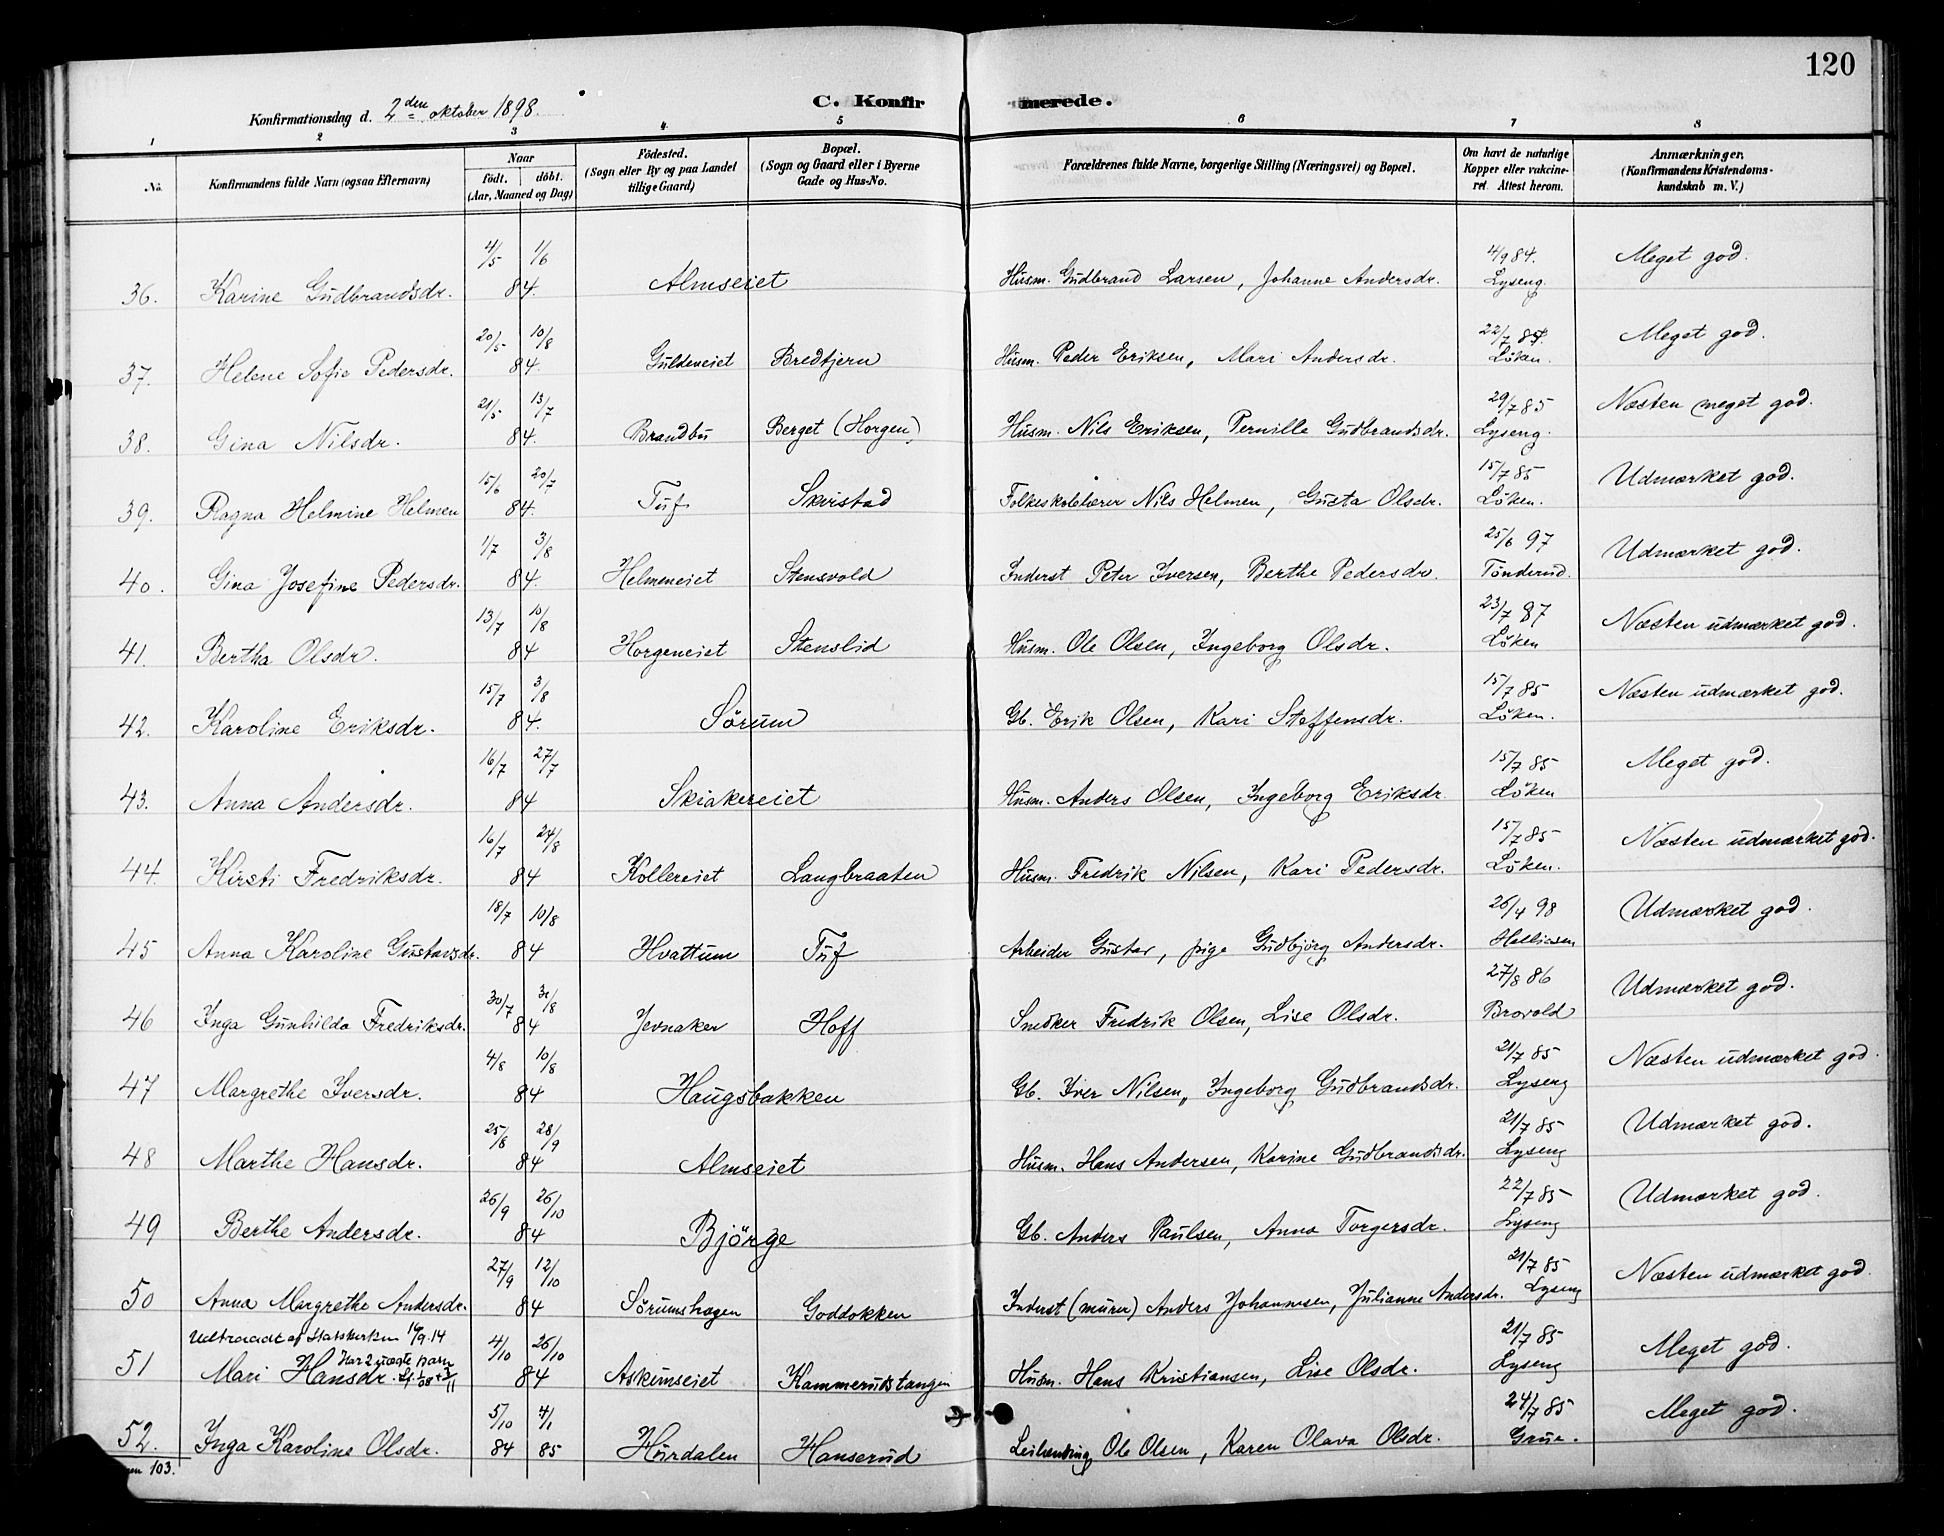 120
C. Konfirmerede.
Konfirmationsdag d. 2den oktober 1898.
1 2 3 4 5 6 7 8
No. Konfirmandens fulde Navn (ogsaa Efternavn) Naar født. døbt. (Aar, Maaned og Dag) Fødested. (Sogn eller By og paa Landet tillige Gaard) Bopæl. (Sogn og Gaard eller i Byerne Gade og Hus-No. Forældrenes fulde Navne, borgerlige Stilling (Næringsvei) og Bopæl. Om havt de naturlige Kopper eller vakcineret. Attest herom. Anmærkninger. (Konfirmandens Kristendomskundskab m. V.)
36. Karine Gudbrandsdr. 4/5 84. 1/6 Almseiet Husm. Gudbrand Larsen, Johanne Andersdr. 4/9 84. Lyseng. Meget god.
37. Helene Sofie Pedersdr. 20/5 84. 10/8 Guldeneiet Bredtjern Husm. Peder Eriksen, Mari Andersdr. 22/7 85. Löken. Meget god.
38. Gina Nilsdr. 21/5 84. 13/7 Brandbu Berget (Horgen) Husm. Nils Eriksen, Pernille Gudbrandsdr. 29/7 85 Lyseng. Næsten meget god.
39. Ragna Helmine Helmen 15/6 84. 20/7 Tuf Skvistad Folkeskolelærer Nils Helmen, Gusta Olsdr. 15/7 85 Löken. Udmærket god.
40. Gina Josefine Pedersdr. 1/7 84. 3/8 Helmeneiet Stensvold Inderst Peter Iversen, Berthe Pedersdr. 25/6 97 Tönderud. Udmærket god.
41. Bertha Olsdr. 13/7 84 10/8 Horgeneiet Stenslid Husm. Ole Olsen, Ingeborg Olsdr. 23/7 87 Löken Næsten udmærket god.
42. Karoline Eriksdr. 15/7 84. 3/8 Sörum Gb. Erik Olsen, Kari Steffensdr. 15/7 85 Löken. Næsten udmærket god.
43. Anna Andersdr. 16/7 84 27/7 Skiakereiet Husm. Anders Olsen, Ingeborg Eriksdr. 15/7 85 Löken Meget god.
44. Kirsti Fredriksdr. 16/7 84 24/8 Kollereiet Langbraaten Husm. Fredrik Nilsen, Kari Pedersdr. 15/7 85 Löken. Næsten udmærket god.
45 Anna Karoline Gustavsdr. 18/7 84 10/8 Hvattum Tuf Arbeider Gustav, pige Gudbjörg Andersdr. 26/4 98 Udmærket god.
46 Inga Gunhilda Fredriksdr. 30/7 84 31/8 Jevnaker Hoff Snedker Fredrik Olsen, Lise Olsdr. 27/8 86 Brovold Udmærket god.
47 Margrethe Iversdr. 4/8 84 10/8 Haugsbakken Gb. Iver Nilsen, Ingeborg Gudbrandsdr. 21/7 85 Lyseng Næsten udmærket god.
48 Marthe Hansdr. 25/8 84 28/9 Almseiet Husm. Hans Andersen, Karine Gudbrandsdr. 21/7 85 Lyseng Udmærket god.
49 Berthe Andersdr. 26/9 84 26/10 Björge Gb. Anders Paulsen, Anna Torgersdr. 22/7 85 Lyseng Udmærket god.
50 Anna Margrethe Andersdr. 27/9 84 12/10 Sörumshagen Goddokken Inderst (murer) Anders Johannesen, Julianne Andersdr. 21/7 85 Lyseng Næsten udmærket god.
Udtraadt af Statskirken 16/9.14
51 Mari Hansdr. Har 2 uægte barn 4/10 84 26/10 Askimseiet Kammerudstangen Husm. Hans Kristiansen, Lise Olsdr. 21/7 85 Lyseng Meget god.
52. Inga Karoline Olsdr. 5/10 84 4/1 85 Hurdalen Hanserud Leilænding Ole Olsen, Karen Olava Olsdr. 24/7 85 Grue. Meget god.
103.